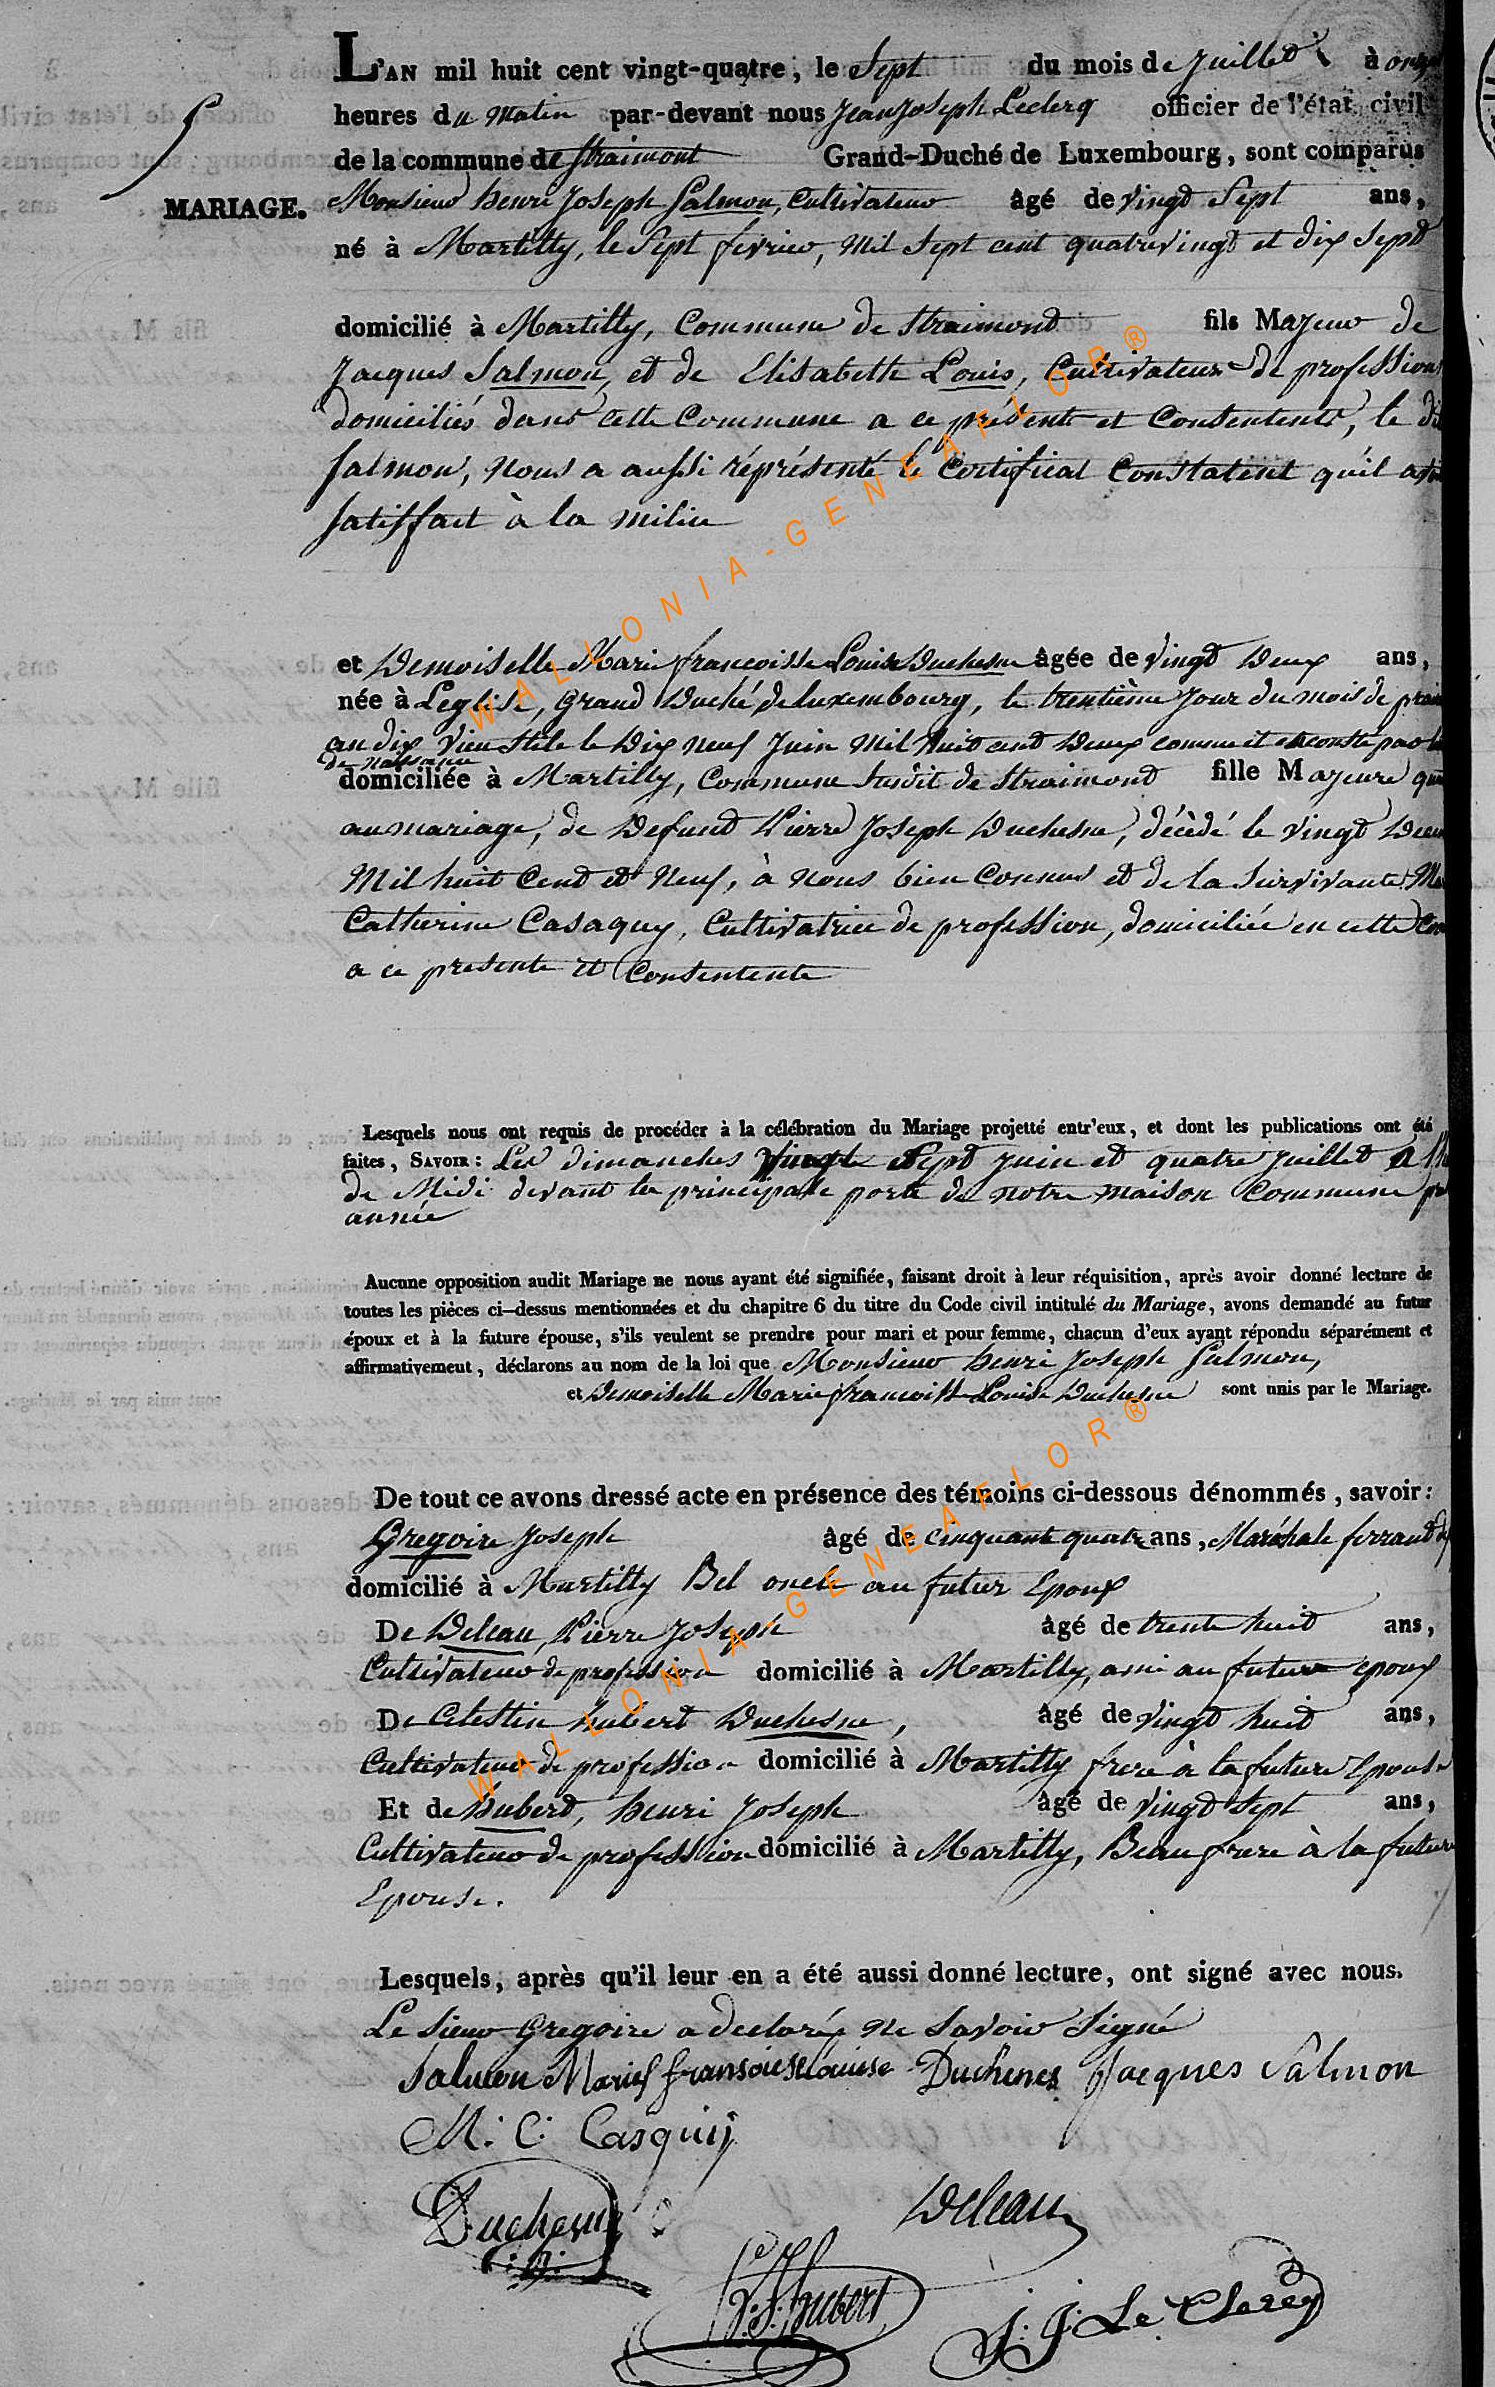 L'AN mil huit cent vingt-quatre, le Sept du mois de Juillet à onze
heures du Matin par-devant nous Jean Joseph Leclerq officier de l'état civil
5
de la commune de Straimont Grand-Duché de Luxembourg, sont comparus
MARIAGE.
Monsieur henri Joseph Salmon, Cultivateur âgé de vingt Sept ans,
né à Martilly, le Sept fevrier, Mil Sept cent quatrevingt et dix Sept
domicilié à Martilly, Commune de Straimond fils Majeur de
Jacques Salmon, et de Elisabette Louis, Cultivateurs de profession
domiciliés dans cette Commune a ce présents et Consentents, le dit
Salmon, Nous a aussi réprésenté le Certificat Constatent qu'il a
satisfait à la milice
et Demoiselle Marie françoisse Louise Duchesne âgée de vingt Deux ans,
née à Leglise, Grand Duché de luxembourg, le trentième Jour du mois de
an dix vieu Stile le Dix neuf Juin Mil huit cent Deux comme il
de Naissance
domiciliée à Martilly, Commune Susdit de Straimond fille Majeure
au mariage, de Defunt Pierre Joseph Duchesne, décèdé le vingt
Mil huit Cent et Neuf, à Nous bien Connus et de la Survivante
Catherine Casaquy, Cultivatrice de profession, domiciliée en cette
a ce presente et Consentente
Lesquels nous ont requis de procéder à la célébration du Mariage projetté entr'eux, et dont les publications ont été
faites, SAVOIR: Les dimanches vingt Sept Juin et quatre Juillet a
de Midi devant la principale porte de notre maison Commune
année
Aucune opposition audit Mariage ne nous ayant été signifiée, faisant droit à leur réquisition, après avoir donné lecture de
toutes les pièces ci-dessus mentionnées et du chapitre 6 du titre du Code civil intitulé du Mariage, avons demandé au futur
époux et à la future épouse, s'ils veulent se prendre pour mari et pour femme, chacun d'eux ayant répondu séparément et
affirmativement, déclarons au nom de la loi que Monsieur henri Joseph Salmon,
et Demoiselle Marie francoisse Louise Duchesne sont unis par le Mariage.
De tout ce avons dressé acte en présence des témoins ci-dessous dénommés, savoir:
Gregoire Joseph âgé de cinquante quatre ans, Maréshale ferrand
domicilié à Martilly Bel oncle au futur Epoux
De Deleau, Pierre Joseph âgé de trente huit ans,
Cultivateur de profession domicilié à Martilly, ami au future epoux
De Celestin hubert Duchesne, âgé de vingt huit ans,
Cultivateur de profession domicilié à Martilly frere à la future Epouse
Et de Hubert, henri Joseph âgé de vingt Sept ans,
Cultivateur de profession domicilié à Martilly, Beau frere à la future
Epouse.
Lesquels, après qu'il leur en a été aussi donné lecture, ont signé avec nous.
Le Sieur Gregoire a declarés Ne Savoir Signé
Salmon Marie fransoise louise Duchenes Jacques Salmon
M: C: Casquiy
Duchesne Deleau
hubert J: J: Le Clercq
WALLONIA-GENEAFLOR®
WALLONIA-GENEAFLOR®